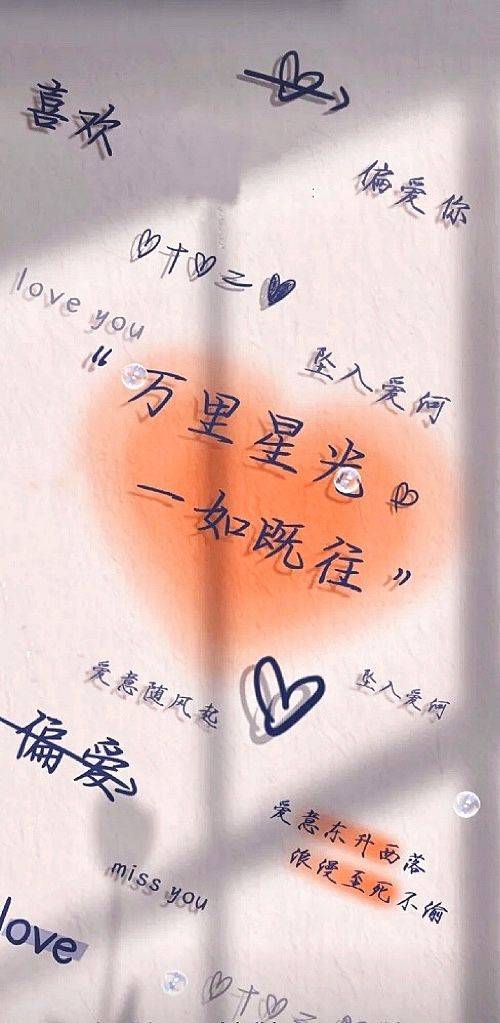 喜欢
偏爱你
♡+♡=♥
love you
坠入爱河
“万里星光
一如既往”
爱意随风起
坠入爱河
偏爱
爱意东升西落
浪漫至死不渝
miss you
love
♡+♡=